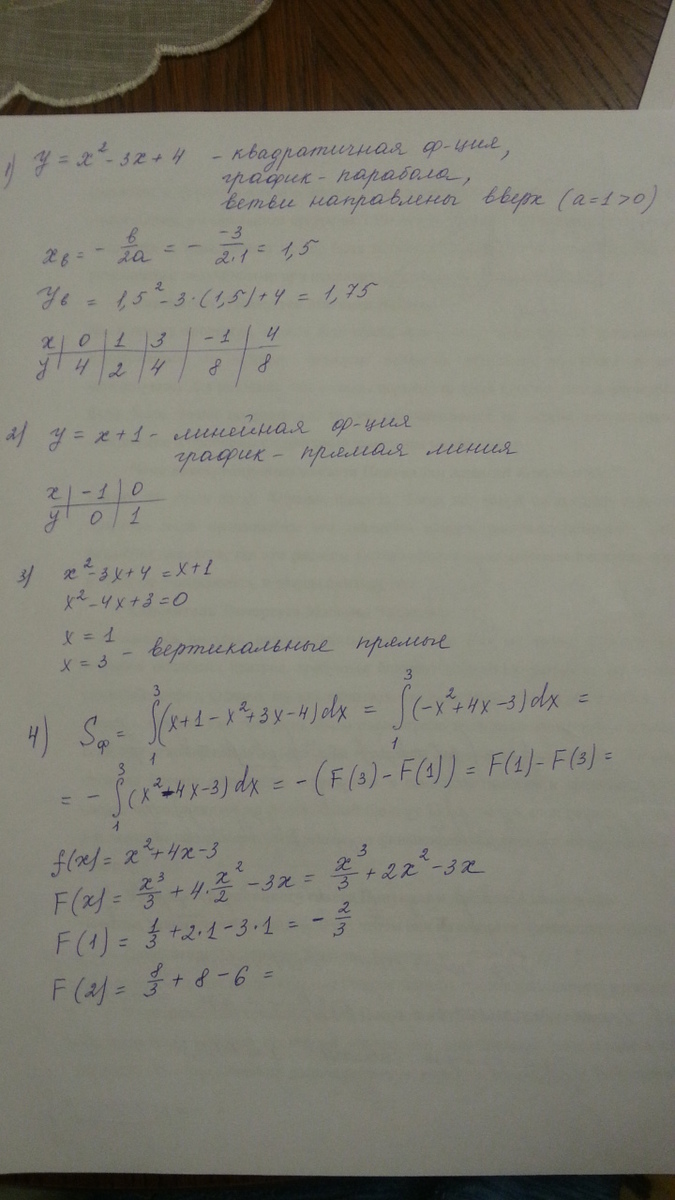 1) y = x² - 3x + 4 - квадратичная ф-ция,
график - парабола,
ветви направлены вверх (a=1>0)
xв = - в/2a = - -3/2·1 = 1,5
yв = 1,5² - 3·(1,5) + 4 = 1,75
x | 0 | 1 | 3 | -1 | 4
y | 4 | 2 | 4 | 8 | 8
2) y = x+1 - линейная ф-ция
график - прямая линия
x | -1 | 0
y | 0 | 1
3) x² - 3x + 4 = x + 1
x² - 4x + 3 = 0
x = 1
x = 3 - вертикальные прямые
4) Sф = ∫₁³ (x+1-x²+3x-4)dx = ∫₁³ (-x²+4x-3)dx =
= - ∫₁³ (x²-4x-3)dx = -(F(3)-F(1)) = F(1)-F(3) =
f(x) = x²+4x-3
F(x) = x³/3 + 4·x²/2 - 3x = x³/3 + 2x² - 3x
F(1) = 1/3 + 2·1 - 3·1 = - 2/3
F(2) = 8/3 + 8 - 6 =